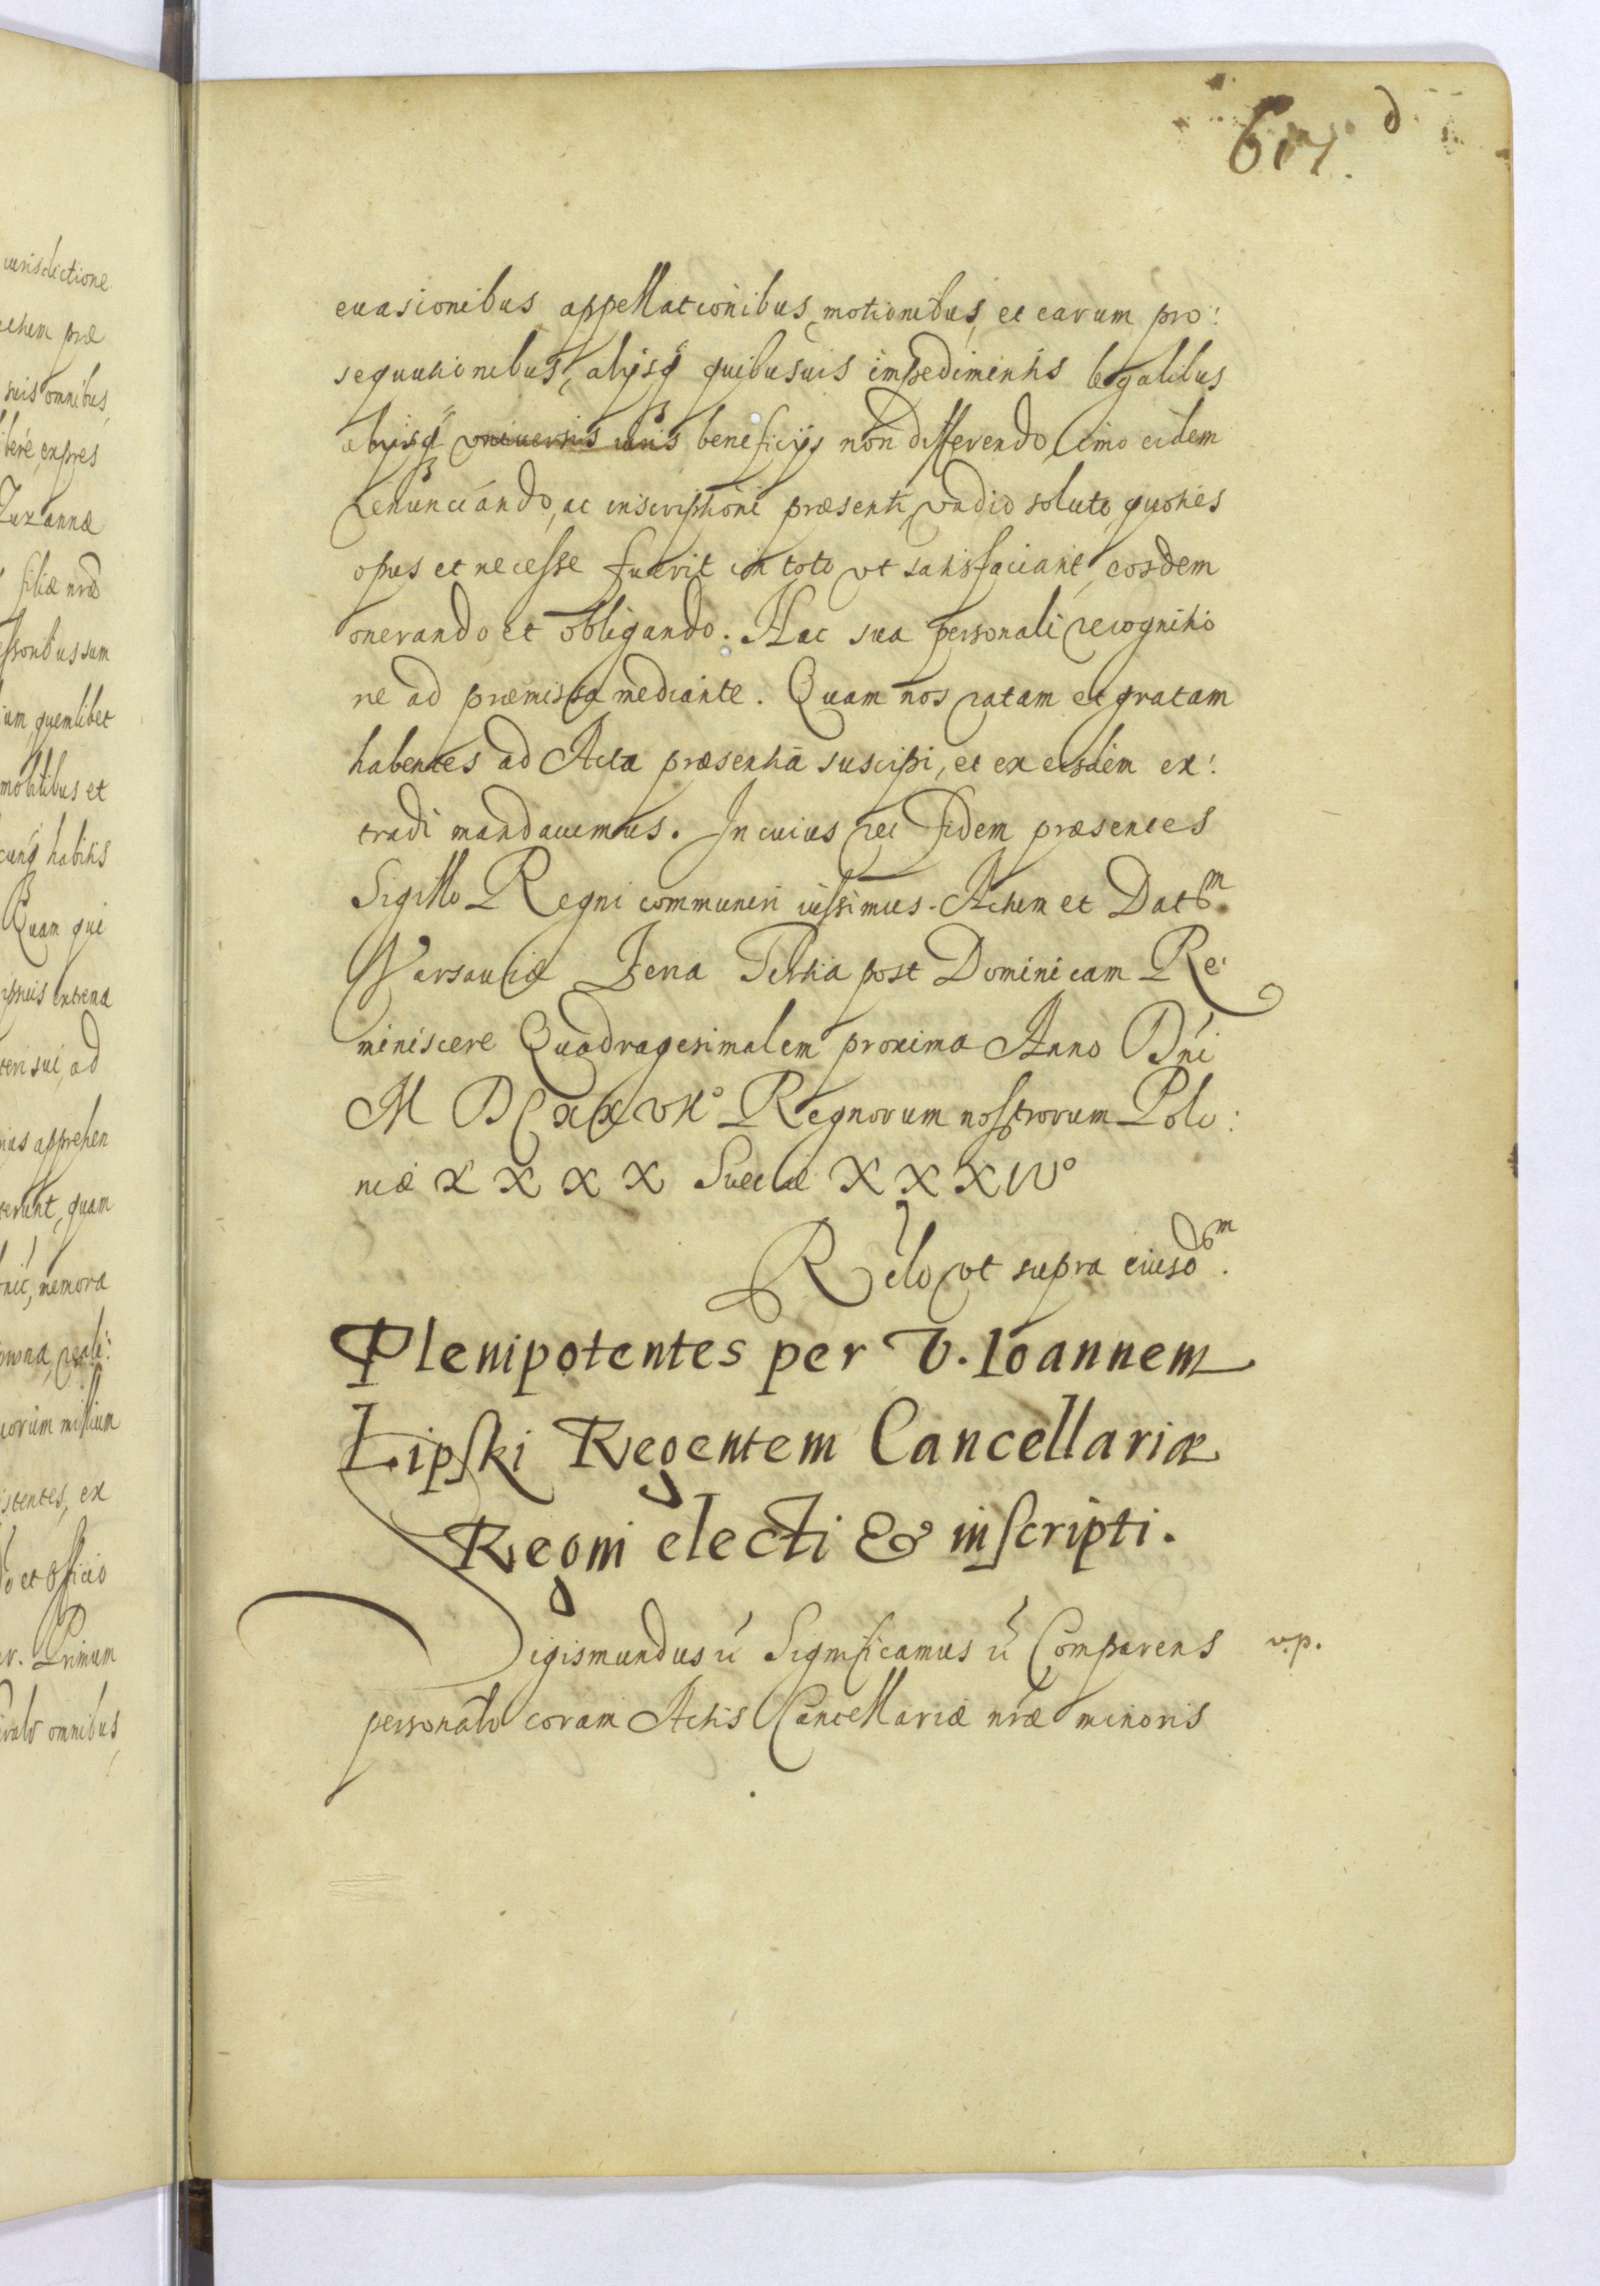 617. d
euasionibus appellationibus, motionibus, et earum pro:
sequutionibus, alijsq quibusuis impedimentis legalibus
alijsq vniuersis iuris beneficijs non differendo, imo eidem
Renunciando, ac inscriptioni præsenti, vadio soluto, quoties
opus et necesse fuerit in toto vt satisfaciant, eosdem
onerando et obligando. Hac sua personali recognitio
ne ad præmissa mediante. Quam nos ratam et gratam
habentes ad Acta præsentia suscipi, et ex eisdem ex:
tradi mandauimus. In cuius rei fidem præsentes
Sigillo Regni communiri iussimus. Actum et Dat m
Varsauiæ Feria Tertia post Dominicam Re:
miniscere Quadragesimalem proxima Anno Dńi
M DC xx VII° Regnorum nostrorum Polo:
niæ X X X X Sueciæ X X X IV°
Rělo vt supra eiusd m.
Plenipotentes per V. Ioannem
Lipski Regentem Cancellariæ
Regni electi & inscripti.
Sigismundus ű Significamus ű Comparens v.p.
personalr coram Actis Cancellariæ nræ minoris
urisdictione
præ
suis omnibus,
expres
Zuzannæ
filiæ nræ
quemlibet
mobilibus et
habitis
Quam qui
sui, ad
apprehen
quam
memora
millium
ex
et officio
Primum
omnibus,